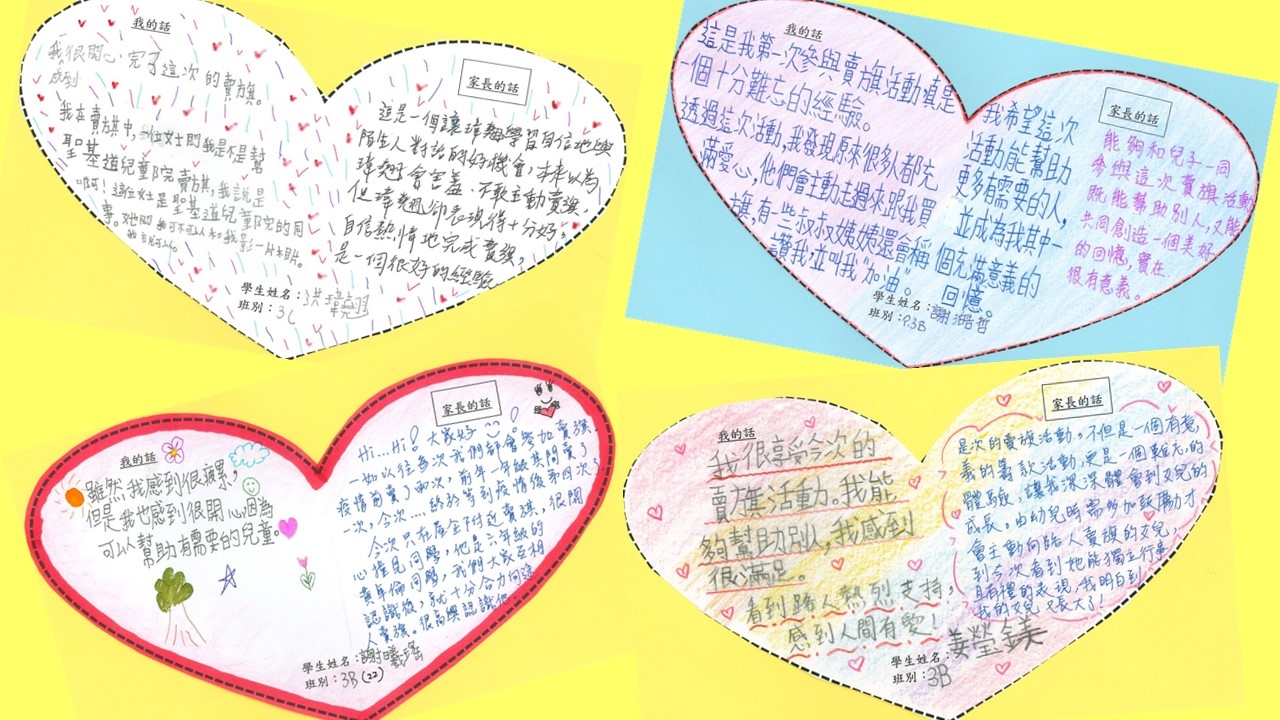 我的話
我很開心,完了這次的賣旗。
感到
我在賣旗中,一位女士問我是不是幫
聖基道兒童院賣旗,我說是
啊!這位女士是聖基道兒童院的同
事。她問我可不可以和我影一片相片。
我說可以。
家長的話
這是一個讓瑋翹學習自信地與
陌生人對話的好機會,本來以為
瑋翹會害羞、不敢主動賣旗,
但瑋翹卻表現得十分好,
自信熱情地完成賣旗,
是一個很好的經驗。
學生姓名:洪瑋翹
班別:3C
我的話
這是我第一次參與賣旗活動真是
一個十分難忘的經驗。
透過這次活動,我發現原來很多人都充
滿愛心,他們會主動走過來跟我買
旗,有一些叔叔姨姨還會稱
讚我,並叫我"加油"。
我希望這次
活動能幫助
更多有需要的人,
並成為我其中一
個充滿意義的
回憶。
家長的話
能夠和兒子一同
參與這次賣旗活動
既能幫助別人,又能
共同創造一個美好
的回憶,實在
很有意義。
學生姓名:謝浩哲
班別:P.3B
我的話
雖然我感到很疲累,
但是我也感到很開心因為
可以幫助有需要的兒童。
家長的話
Hi...Hi! 大家好!
一如以往每次我們都會參加賣旗,
疫情前賣了兩次,前年一年級共開賣了
一次,今次....終於等到疫情後第四次了
今次只在屋企附近賣旗,很開
心撞見同學,他是三年級的
黃年倫同學,我們大家互相
認識後,就十分合力向途
人賣旗。很高興認識他。
學生姓名:謝曦瑤
班別:3B (22)
我的話
我很享受今次的
賣旗活動。我能
夠幫助別人,我感到
很滿足。
看到路人熱烈支持,
感到人間有愛!
家長的話
是次的賣旗活動,不但是一個有意
義的籌款活動,更是一個難忘的
體驗,讓我深深體會到女兒的
成長。由幼兒時需多加鼓勵才
會主動向路人賣旗的女兒,
到今次看到她能獨立行事
且有禮的表現,我明白到
我的女兒又長大了!
學生姓名:姜瑩鎂
班別:3B